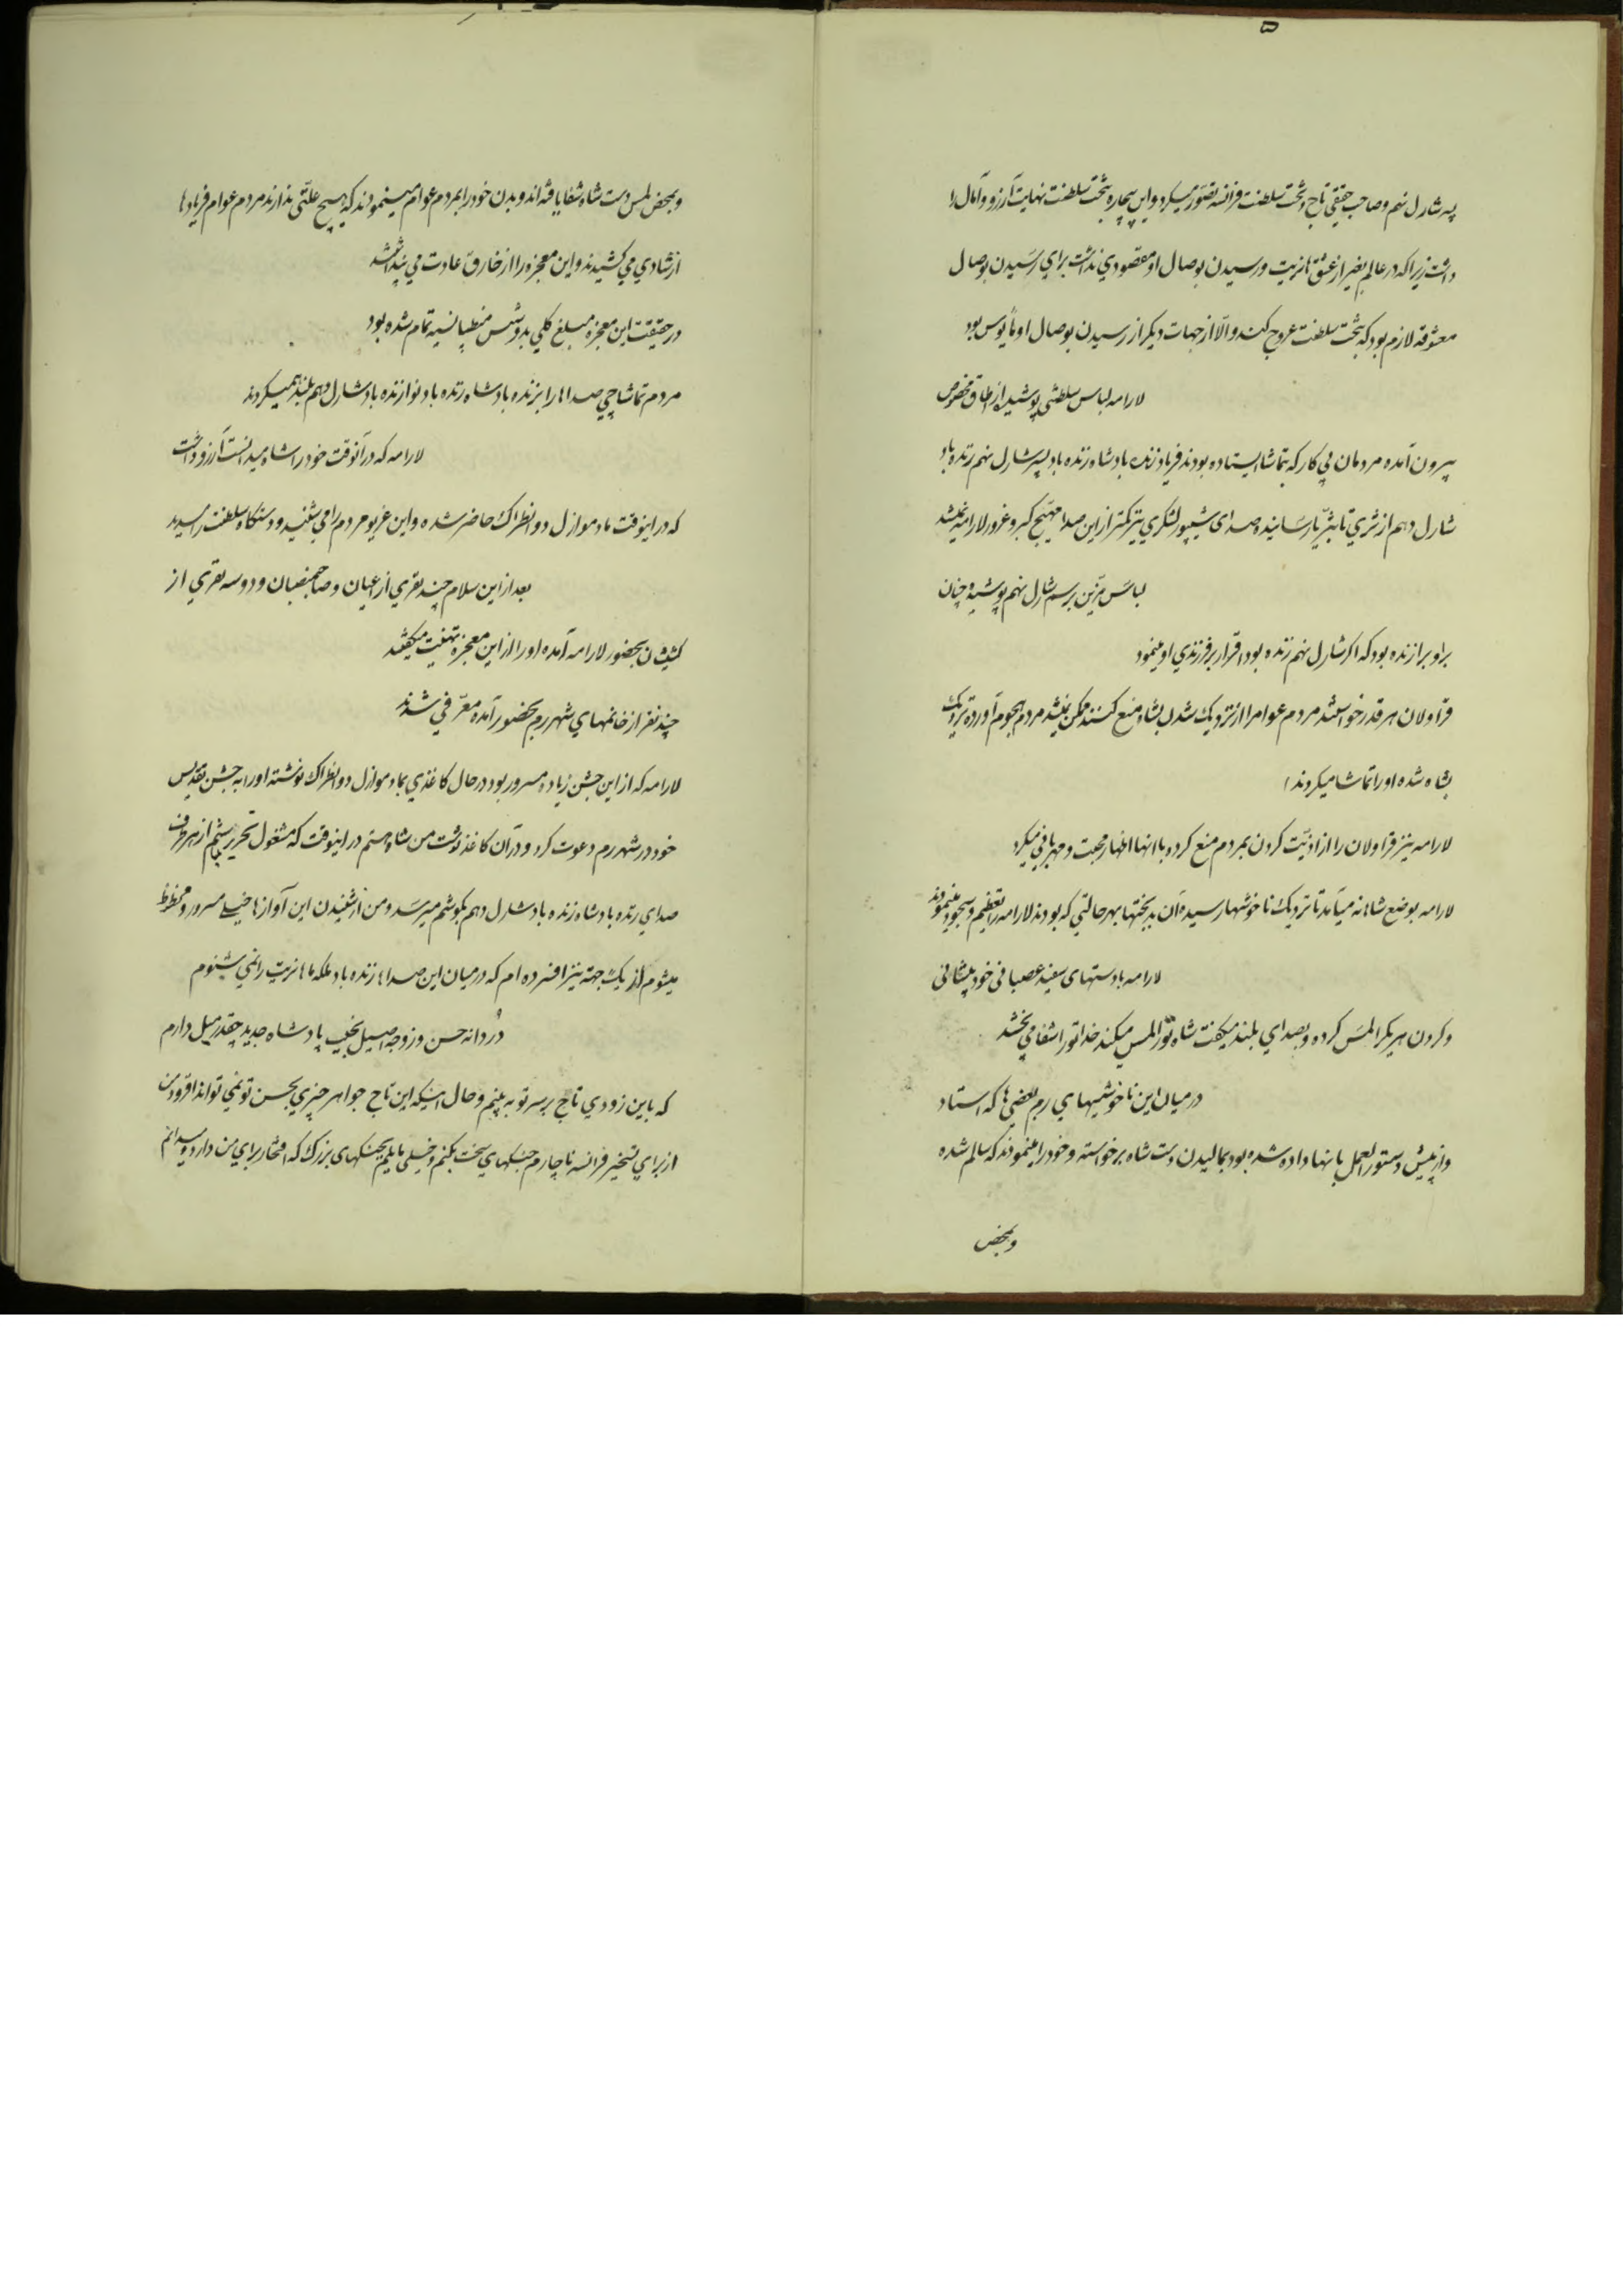 ۵
پسر شارل نهم و صاحب حقیقی تاج و تخت سلطنت فرانسه تصور میکرد و این بیچاره بتخت سلطنت نهایت آرزو و آمال را
داشت زیرا که در عالم بغیر از عشق مانریت و رسیدن بوصال او مقصودی نداشت برای رسیدن بوصال
معشوقه لازم بود که بتخت سلطنت عروج کند و الّا از جهات دیگر از رسیدن بوصال او مأیوس بود
لارامه لباس سلطنتی پوشیده از اطاق مخصوص
بیرون آمده مردمان بی کار که بتماشا ایستاده بودند فریاد زنده باد شاه زنده باد پسر شارل نهم زنده باد
شارل دهم از ثری تا بثریّا رسانیده صدای شیپور لشکری بیز کمتر از این صدا مهیّج کبر و غرور لارامه میشد
لباس مزیّن برسم شارل نهم پوشیده چنان
بر او برازنده بود که اگر شارل نهم زنده بود اقرار بر فرزندی او مینمود
قراولان هر قدر خواستند مردم عوامرا از نزدیک شدن بشاه منع کنند ممکن نمیشد مردم هجوم آورده نزدیک
بشاه شده او را تماشا میکردند
لارامه نیز قراولان را از اذیّت کردن بمردم منع کرده باانها اظهار محبت و مهربانی میکرد
لارامه بوضع شاهانه میآمد تا نزدیک ناخوشها رسیده آن بدبختها بهر حالتی که بودند لارامه را تعظیم و سجود مینمودند
لارامه با دستهای سفید عصبانی خود پیشانی
و گردن هر یکرا لمس کرده و بصدای بلند میگفت شاه تو را لمس میکند خدا تو را شفا می بخشد
در میان این ناخوشیهای رم بعضی ها که استاد
و از پیش دستورالعمل بانها داده شده بود بمالیدن دست شاه برخواسته و خود را مینمودند که سالم شده
و بمحض
و بمحض لمس دست شاه شفا یافته اند و بدن خود را بمردم عوام مینمودند که هیچ علّتی ندارند مردم عوام فریادها
از شادی می کشیدند و این معجزه را از خارق عادت می پنداشتند
در حقیقت این معجزه مبلغ کلی بدوشس منطپانسیه تمام شده بود
مردم تماشاچی صداها را بزنده باد شاه زنده باد نواز زنده باد شارل دهم بلند همیکردند
لارامه که در آنوقت خود را شاه میدانست آرزو داشت
که در اینوقت مادموازل دوانطراک حاضر شده و این غریو مردم را می شنید و دستگاه سلطنت را میدید
بعد از این سلام چند نفری از اعیان و صاحبمنصبان و دو سه نفری از
کشیشان بحضور لارامه آمده او را از این معجزه تهنیت میگفتند
چند نفر از خانمهای شهر رم بحضور آمده معرّفی شدند
لارامه که از این جشن زیاده مسرور بود در حال کاغذی بمادموازل دوانطراک نوشته او را به جشن تقدیس
خود در شهر رم دعوت کرد و در آن کاغذ نوشت من شاه هستم در اینوقت که مشغول تحریر میباشم از هر طرف
صدای زنده باد شاه زنده باد شارل دهم بگوشم میرسد و من از شنیدن این آوازها خیلی مسرور و محظوظ
میشوم از یک جهة نیز افسرده ام که در میان این صداها زنده باد ملکه ما مانریت را نمی شنوم
دُردانه حسن و زوجه اصیل نجیب پادشاه جدید چقدر میل دارم
که باین زودی تاج بر سر تو به بینم و حال اینکه این تاج جواهر چیزی بحسن تو نمی تواند افزود من
از برای تسخیر فرانسه ناچارم جنگهای سخت بکنم و خیلی مایلم بجنگهای بزرگ که افتخار برای من دارد و میدانم